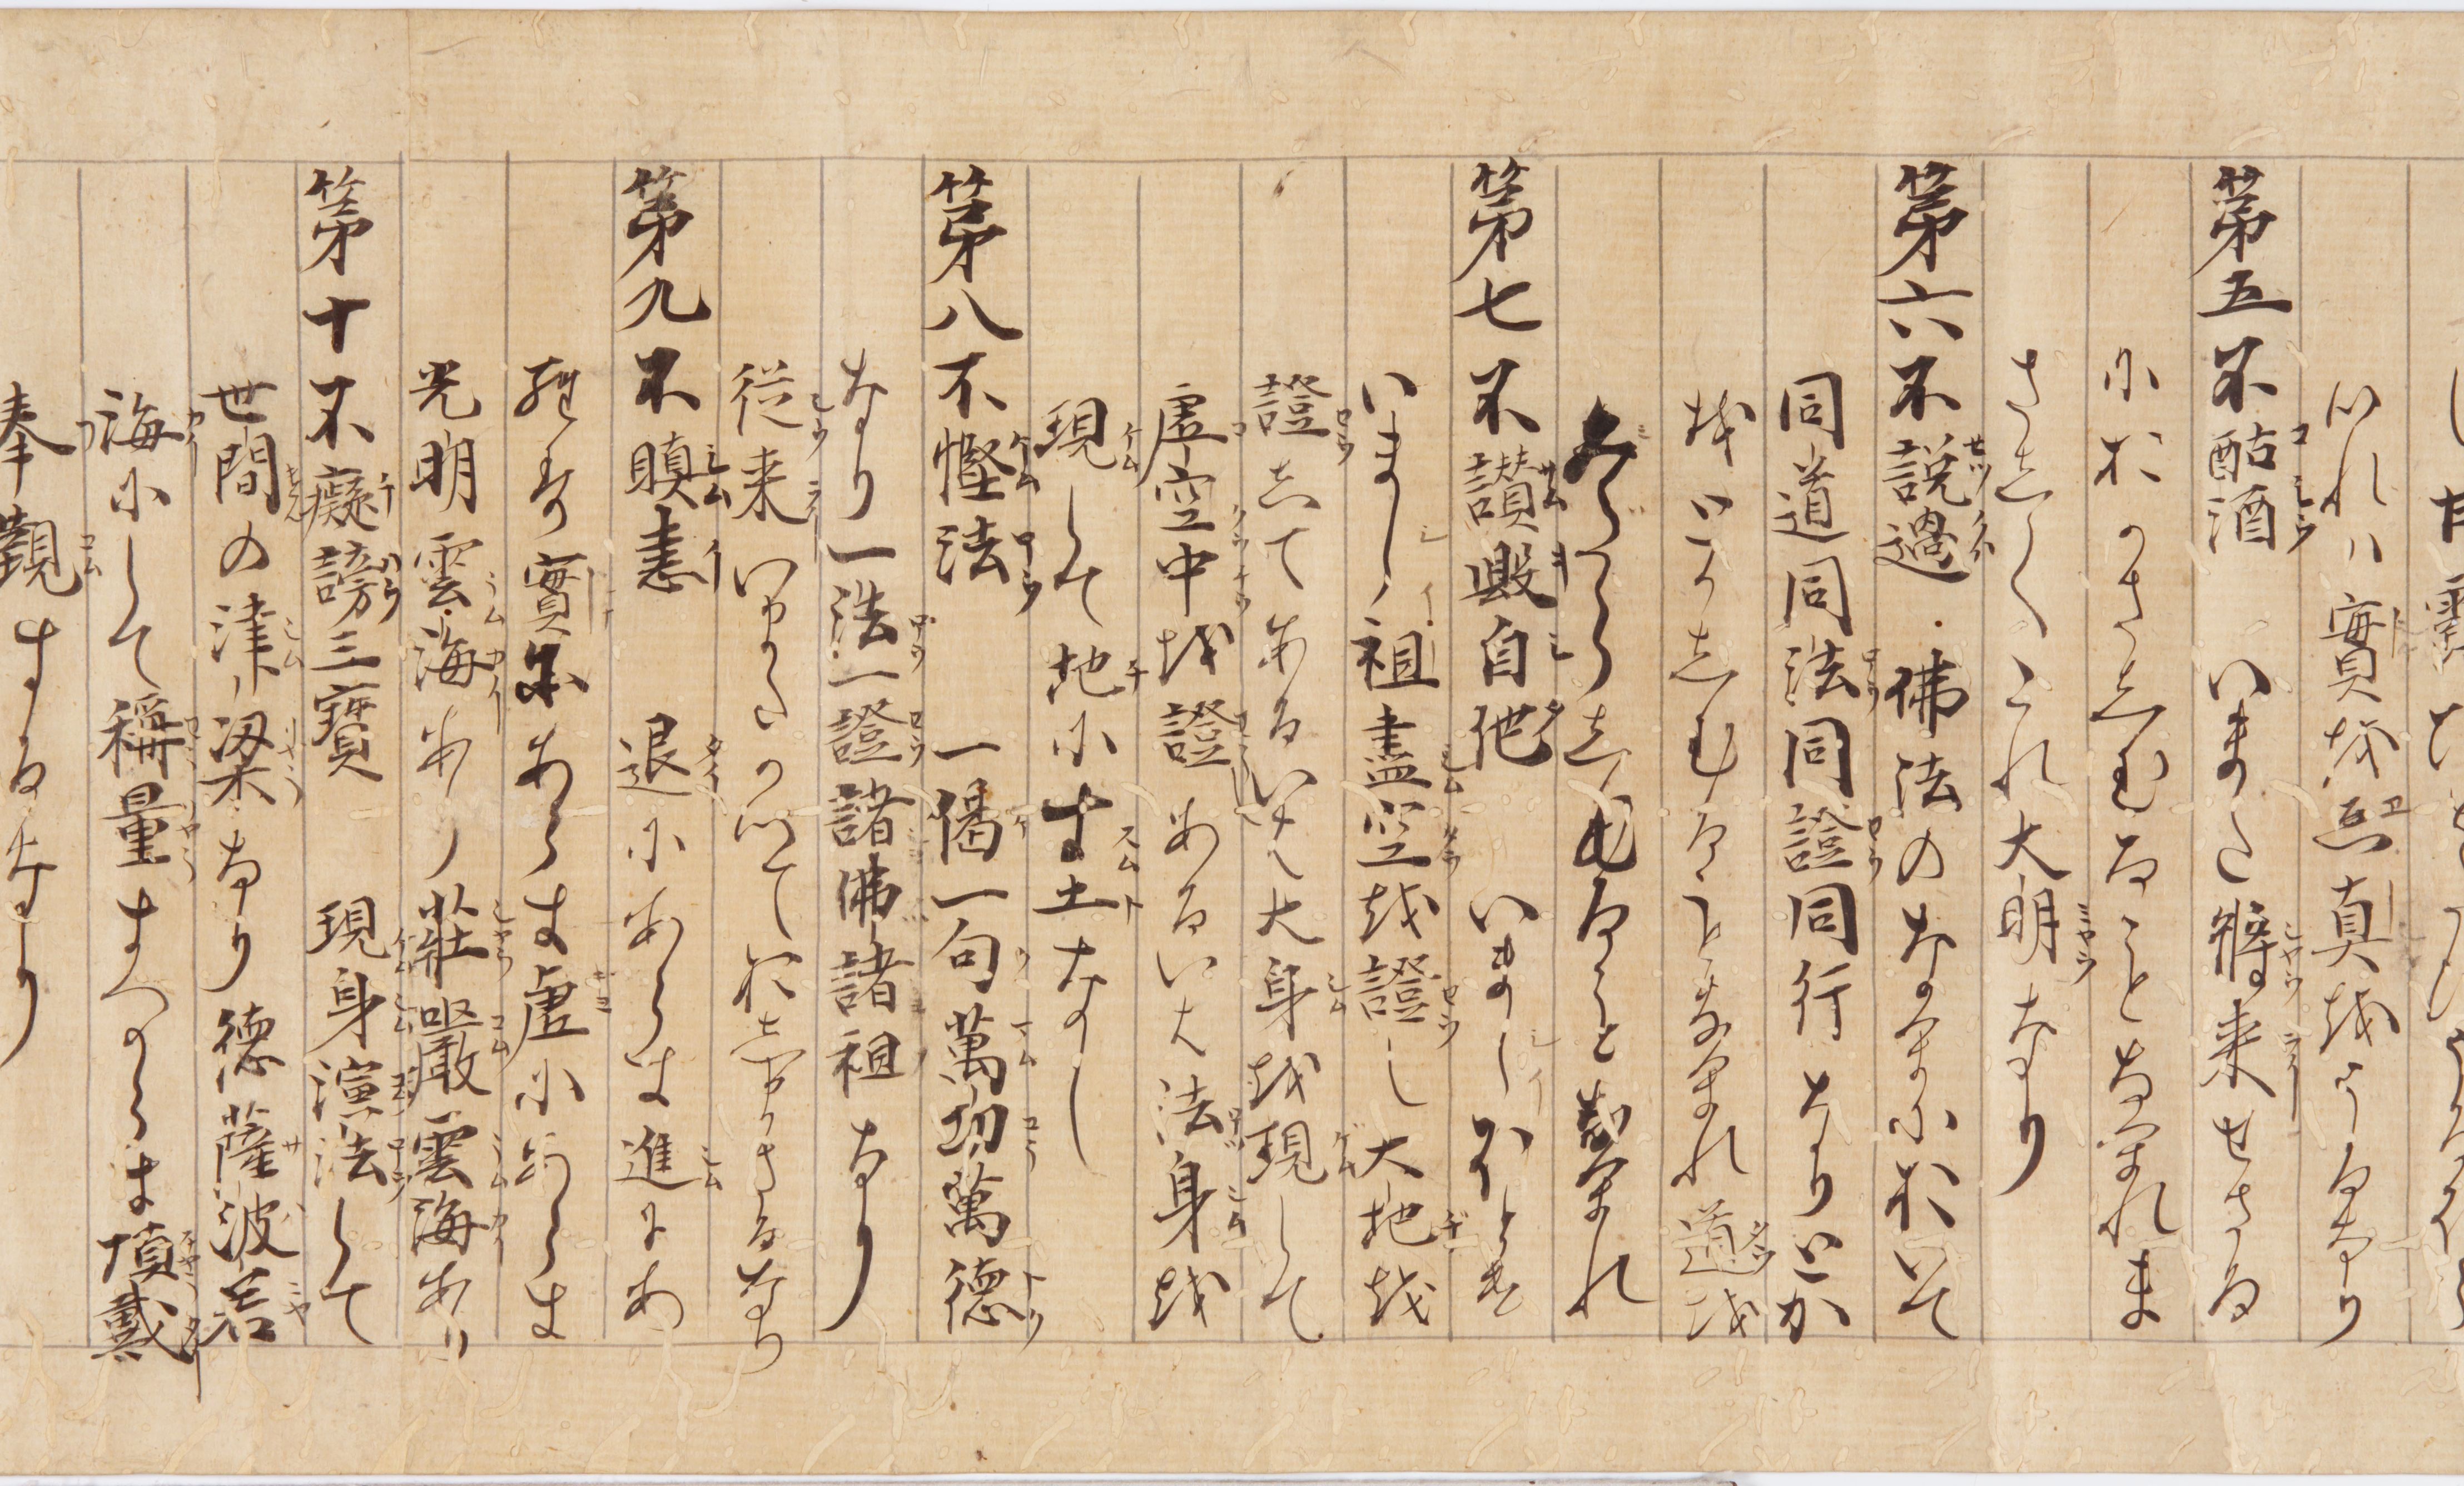 いれハ實越
真越うるなり
第五不酤酒 いまた将来せさる
におかさしむることなかれま
さしくこれ大明なり
第六不説過 佛法のなかにおいて
同道同法同證同行なりとか
越とかしむることなかれ道越
みたらしむることなかれ
第七不讃毀自他 いましほとけ
いまし祖盡空越證し大地越
證してあるいハ大身越現して
虚空中越證あるいハ法身越
現して地に寸土なし
第八不慳法 一偈一句萬功萬徳
なり一法一證諸佛諸祖なり
従来いまたかつておしまさるなり
第九不瞋恚 退にあらす進にあ
らす實にあらす虚にあらす
光明雲海あり莊嚴雲海あり
第十不癡謗三寶 現身演法して
世間の津梁なり徳薩波若
海にして稱量すへからす頂戴
奉覲するなり